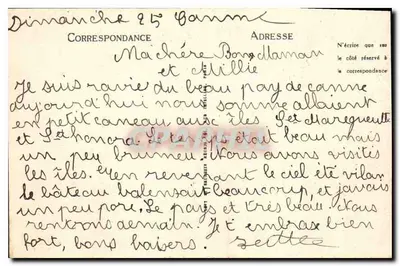 Dimanche 25 Canne
CORRESPONDANCE ADRESSE
Ma chére Bonne Maman
et Millie
N'écrire que sur
le côté réservé à
la correspondance
Je suis ravie du beau pay de canne
aujourd'hui nous somme allaient
en petit caneau aux îles. Ste Margueritte
et St honora. Le temp était beau mais
un peu brumeu. Nous avons visités
les îles. En revenant le ciel été vilan
le bâteau balensait beaucoup, et javais
un peu pore. Le pays et très beau. Nous
rentrons demain. Je t'embrase bien
fort, bons baisers.